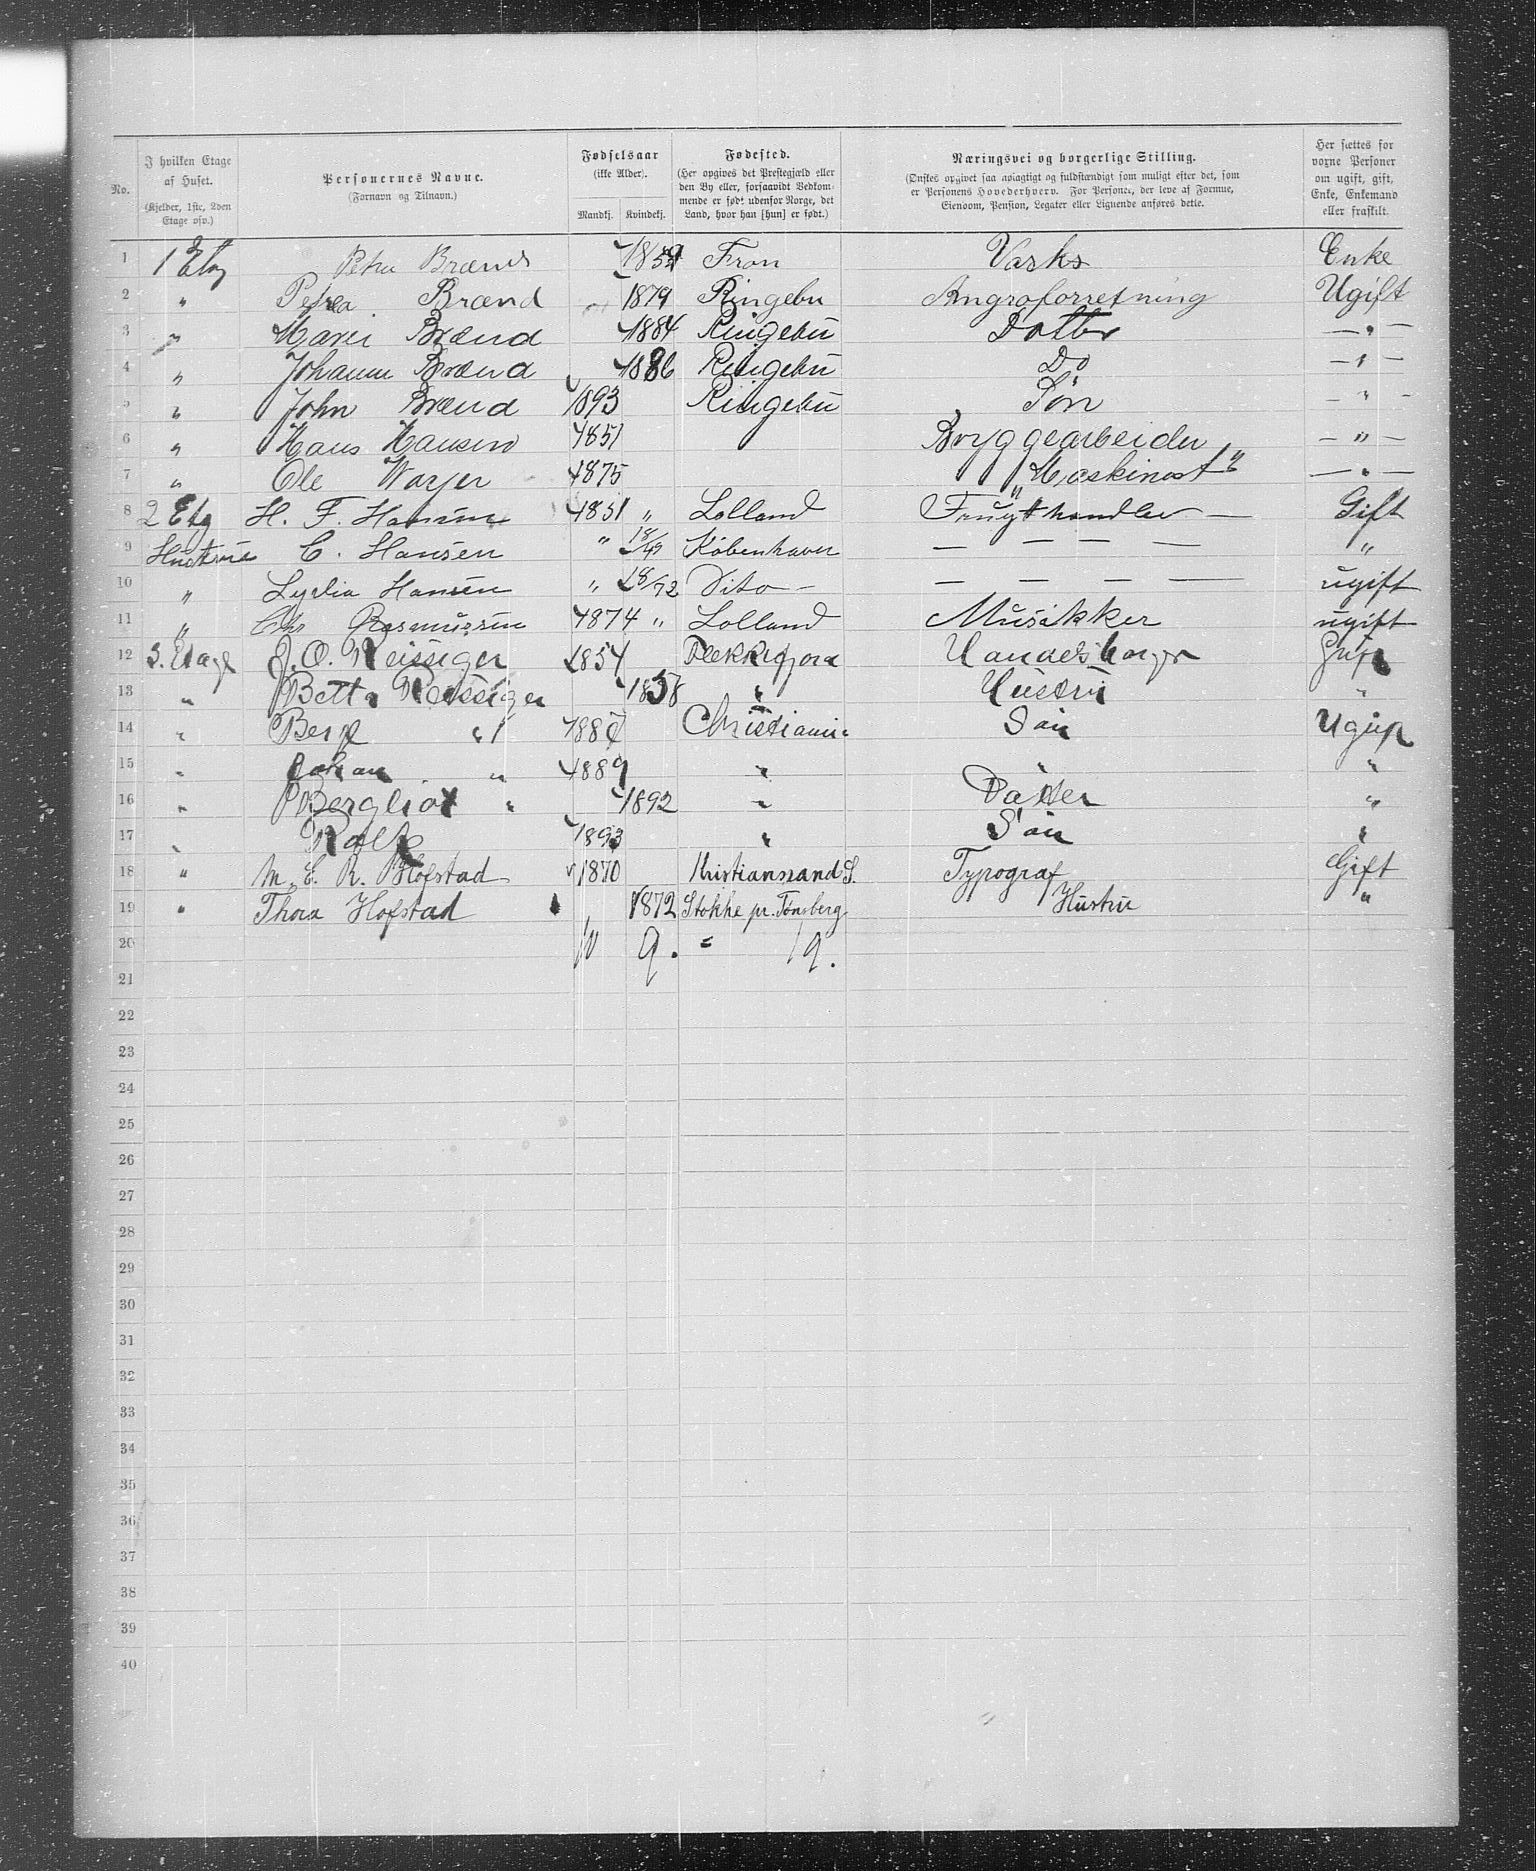 No.
I hvilken Etage af Huset. (Kjelder, 1ste, 2den Etage osv.)
Personernes Navne. (Fornavn og Tilnavn.)
Fødselsaar (ikke Alder).
Mandkj. Kvindekj.
Fødested. (Her opgives det Prestegjæld eller den By eller, forsaavidt Vedkommende er født udenfor Norge, det Land, hvor han [hun] er født.)
Næringsvei og borgerlige Stilling. (Ønskes opgivet saa nøiagtigt og fuldstændigt som muligt efter det, som er Personens Hovederhverv. For Personer, der leve af Formue, Eiendom, Pension, Legater eller Lignende anføres dette.
Her sættes for voxne Personer om ugift, gift, Enke, Enkemand eller fraskilt.
1 1 Etg Petra Brænd 1859 Fron Vasks Enke
2 " Petra Brænd 1879 Ringebu Angroforretning Ugift
3 " Maren Brænd 1884 Ringebu Dotter — " —
4 " Johanne Brænd 1886 Ringebu Do — " —
5 " John Brænd 1893 Ringebu Søn — " —
6 " Hans Hansen 1851 Bryggearbeider — " —
7 " Ole 1875 " Maskinost " — " —
8 2 Etg H. F. Hansen 1851 " Lolland Frugthandler — Gift
9 Hustrue C. Hansen " 18/49 København — — — — "
10 " Lydia Hansen " 18/72 Dito — — — — — ugift
11 " Chr Rasmussen 1874 " Lolland Musikker ugift
12 3. Etage J. O. Reissiger 1854 Flekkefjord Handelsborger Gift
13 " Betta Reissiger 1858 " Hustru "
14 " Berg " 1886 Christiania Søn Ugift
15 " Johan " 1889 " " "
16 " Bergliot " 1892 " Datter "
17 " Rolf 1893 " Søn "
18 " M. E. R. Hofstad 1870 Kristianssand S. Typograf Gift
19 " Thora Hofstad 1872 Stokke pr. Tønsberg Hustru "
20 10 9. = 19.
21
22
23
24
25
26
27
28
29
30
31
32
33
34
35
36
37
38
39
40